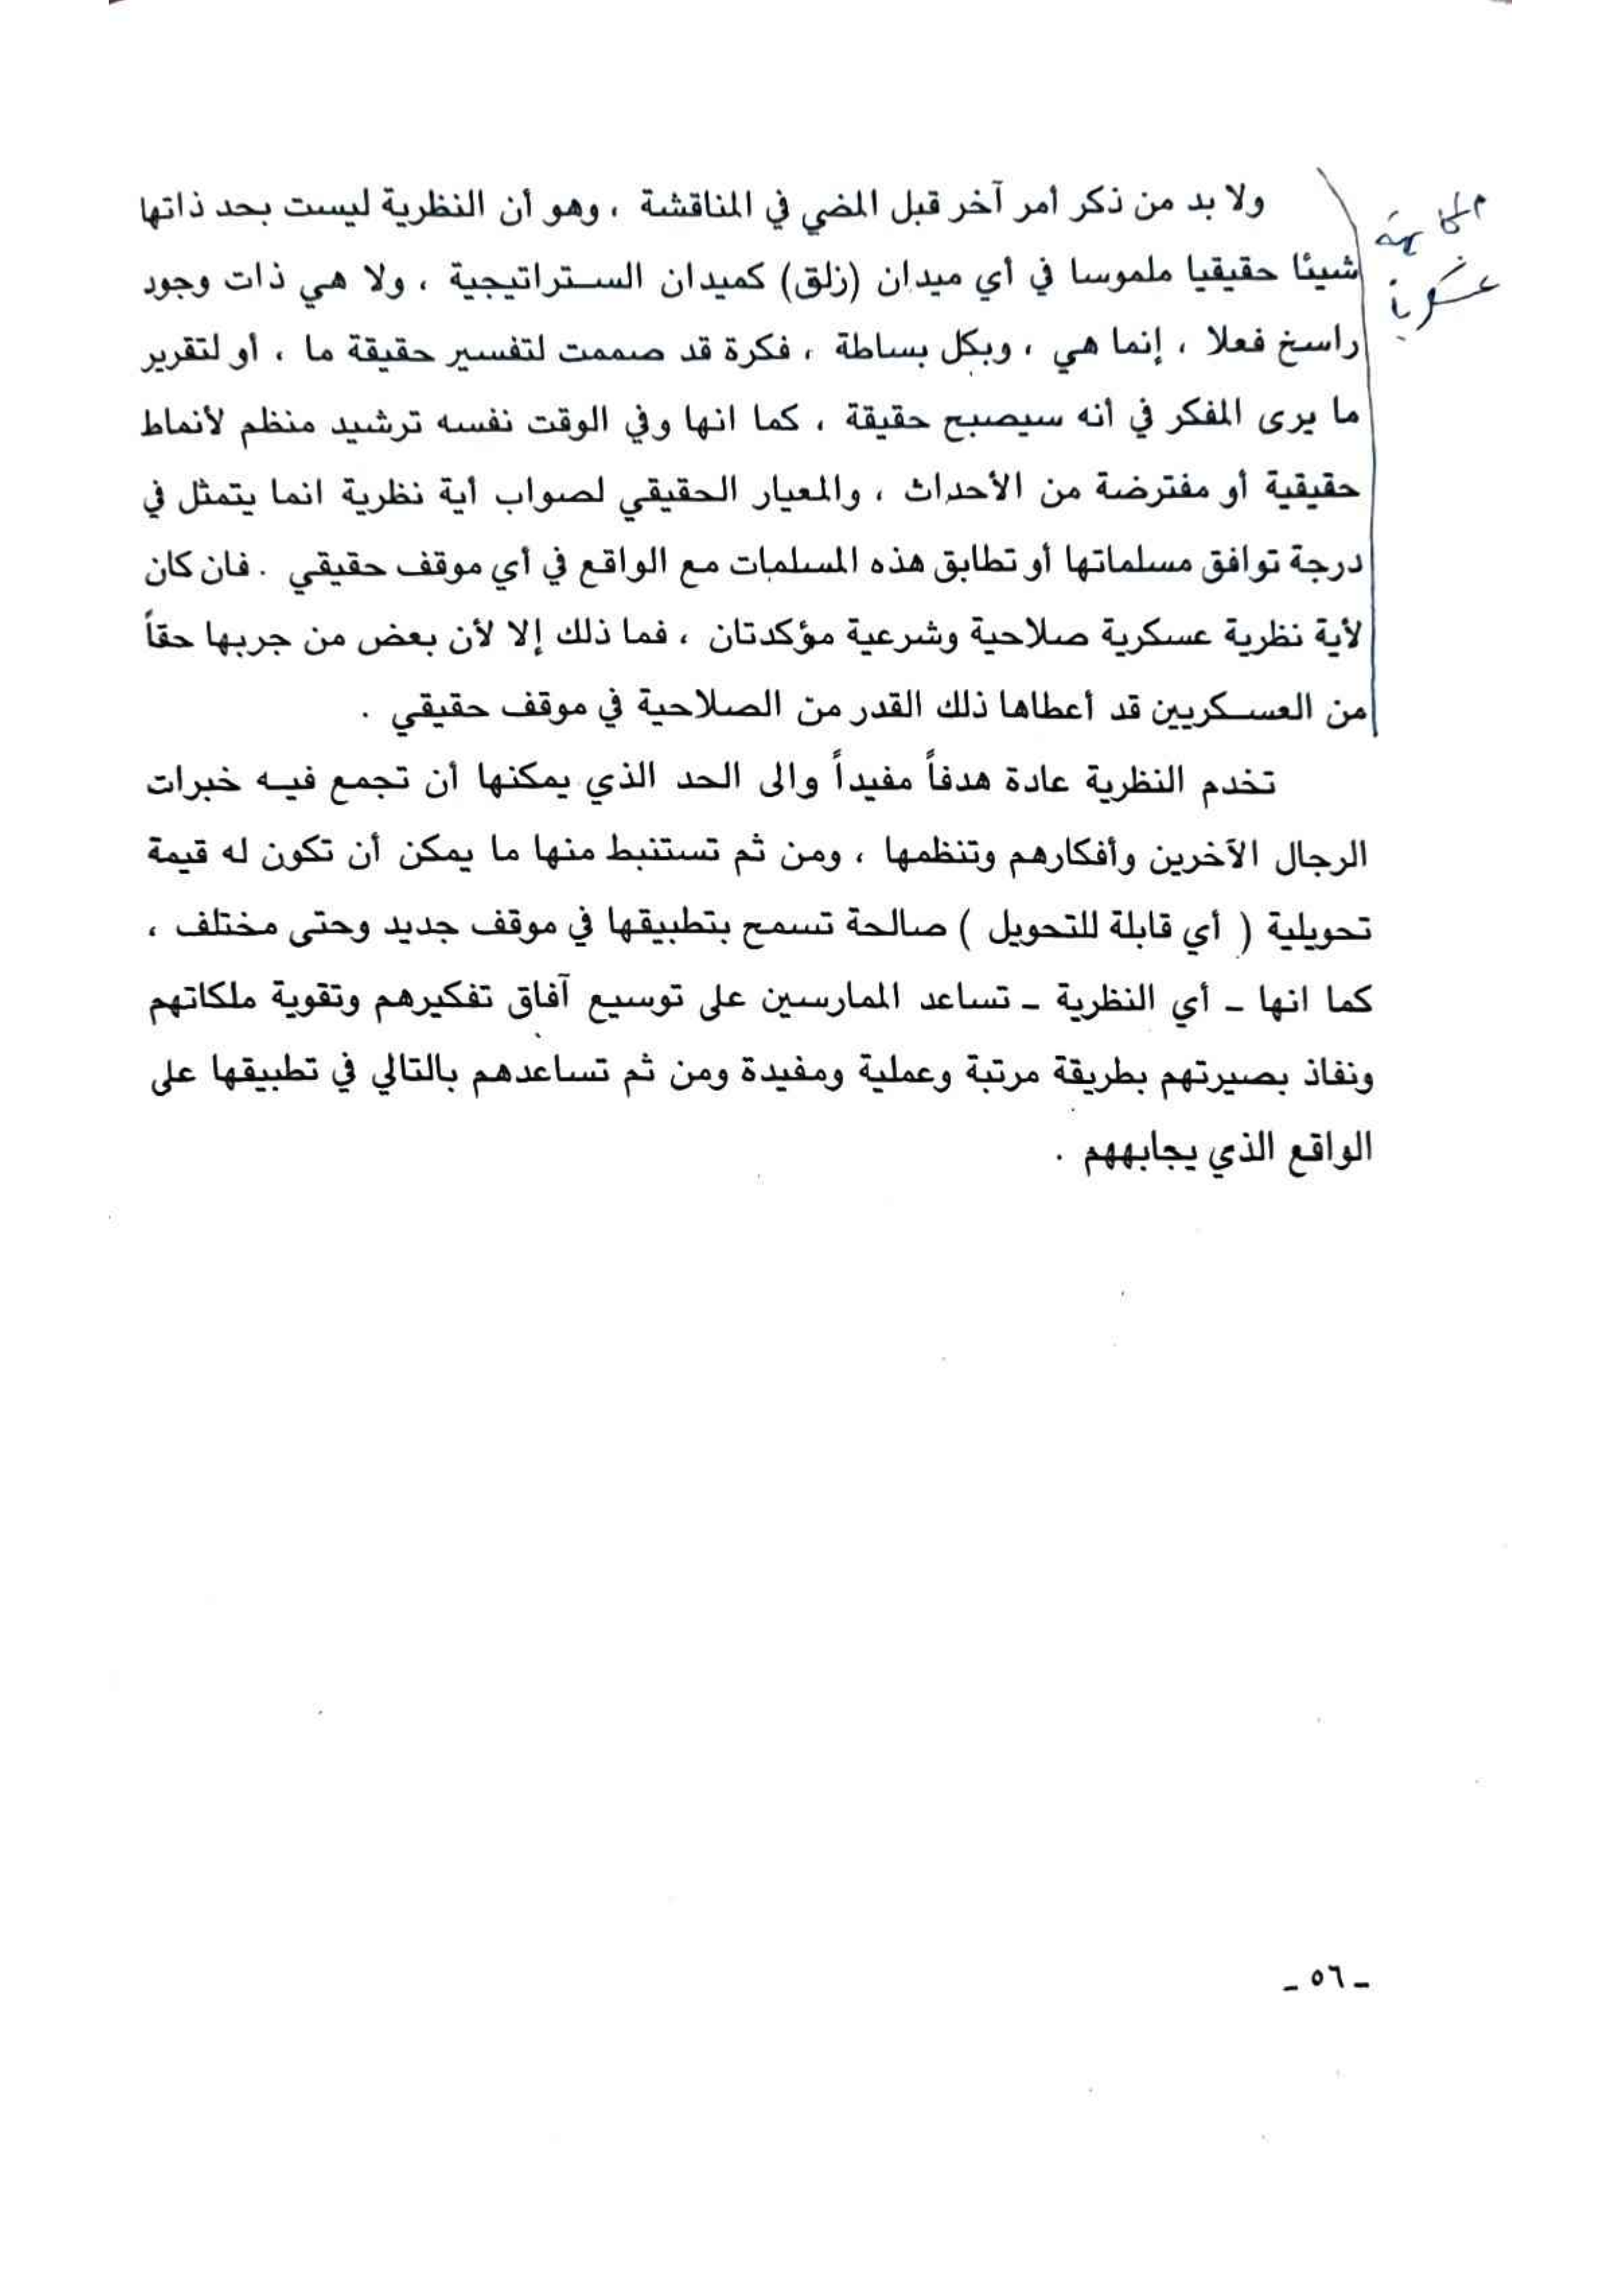 ولا بد من ذكر أمر آخر قبل المضي في المناقشة ، وهو أن النظرية ليست بحد ذاتها
شيئا حقيقيا ملموسا في أي ميدان (زلق) كميدان الستراتيجية ، ولا هي ذات وجود
راسخ فعلا ، إنما هي ، وبكل بساطة ، فكرة قد صممت لتفسير حقيقة ما ، أو لتقرير
ما يرى المفكر في أنه سيصبح حقيقة ، كما انها وفي الوقت نفسه ترشيد منظم لأنماط
حقيقية أو مفترضة من الأحداث ، والمعيار الحقيقي لصواب أية نظرية انما يتمثل في
درجة توافق مسلماتها أو تطابق هذه المسلمات مع الواقع في أي موقف حقيقي . فان كان
لأية نظرية عسكرية صلاحية وشرعية مؤكدتان ، فما ذلك إلا لأن بعض من جربها حقاً
من العسكريين قد أعطاها ذلك القدر من الصلاحية في موقف حقيقي .
تخدم النظرية عادة هدفاً مفيداً والى الحد الذي يمكنها أن تجمع فيه خبرات
الرجال الآخرين وأفكارهم وتنظمها ، ومن ثم تستنبط منها ما يمكن أن تكون له قيمة
تحويلية ( أي قابلة للتحويل ) صالحة تسمح بتطبيقها في موقف جديد وحتى مختلف ،
كما انها ـ أي النظرية ـ تساعد الممارسين على توسيع آفاق تفكيرهم وتقوية ملكاتهم
ونفاذ بصيرتهم بطريقة مرتبة وعملية ومفيدة ومن ثم تساعدهم بالتالي في تطبيقها على
الواقع الذي يجابههم .
عسكرياً
ـ ٥٦ ـ